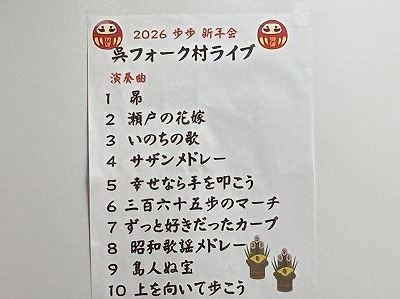 2026 歩歩 新年会
呉フォーク村ライブ
演奏曲
1 昴
2 瀬戸の花嫁
3 いのちの歌
4 サザンメドレー
5 幸せなら手を叩こう
6 三百六十五歩のマーチ
7 ずっと好きだったカープ
8 昭和歌謡メドレー
9 島人ぬ宝
10 上を向いて歩こう